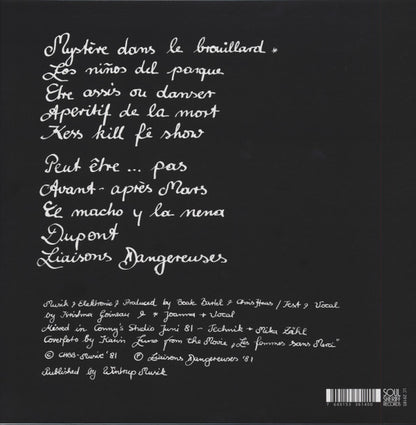 Mystère dans le brouillard *
Los niños del parque
Etre assis ou danser
Aperitif de la mort
Kess kill fé show
Peut être ... pas
Avant-après Mars
El macho y la nena
Dupont
Liaisons Dangereuses
Musik, Elektronic, Produced by Beate Bartel & Chris Haas / Text, Vocal
by Krishna Goineau & * Joanna * Vocal
Mixed in Conny's Studio Juni 81 - Technik *
Coverfoto by Karin from the Movie, "Les femmes sans Merci"
© CHBB-Musik '81 ℗ Liaisons Dangereuses '81
Published by Wintrup Musik
SOUL
SHERIFF
RECORDS